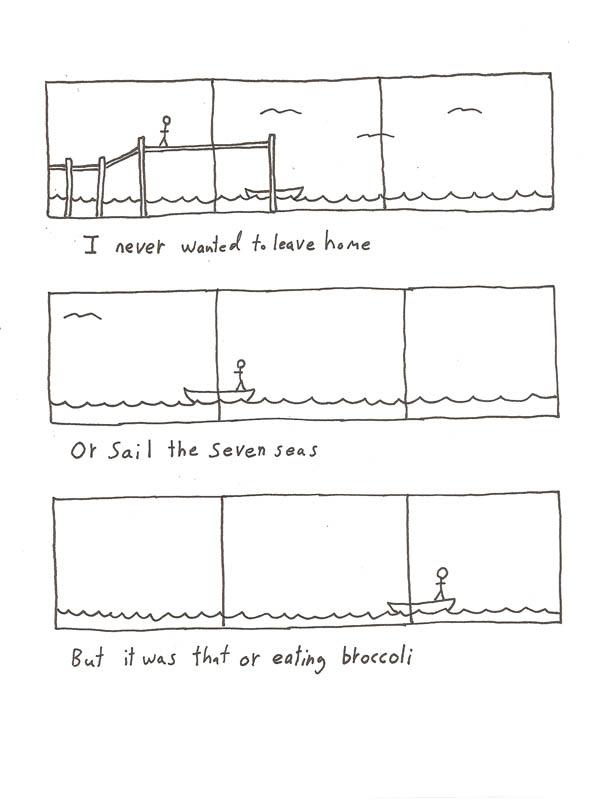 I never wanted to leave home
Or Sail the Seven seas
But it was that or eating broccoli